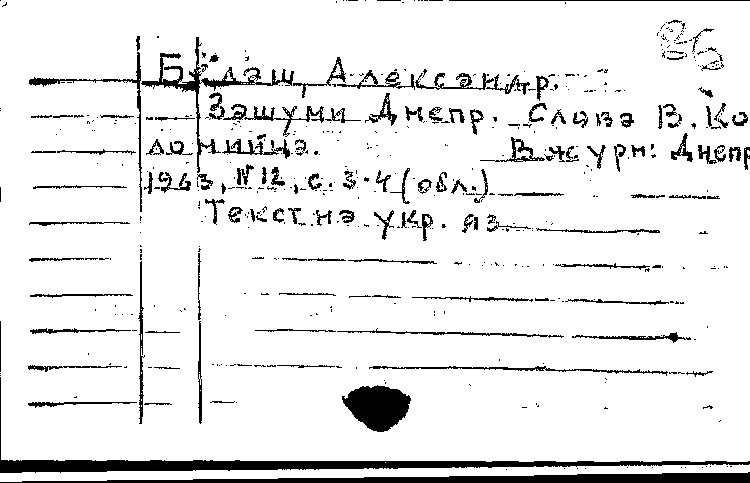 86
Билаш, Александр.
Зашуми Днепр. Слова В. Ко
ломийца. В журн: Днепр
1963, №12, с. 3-4 (обл.)
Текст на укр. яз.